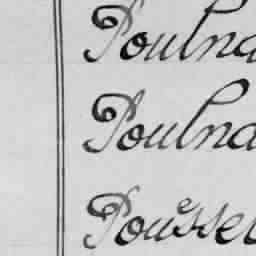 Poulna
Poulna
Pousse